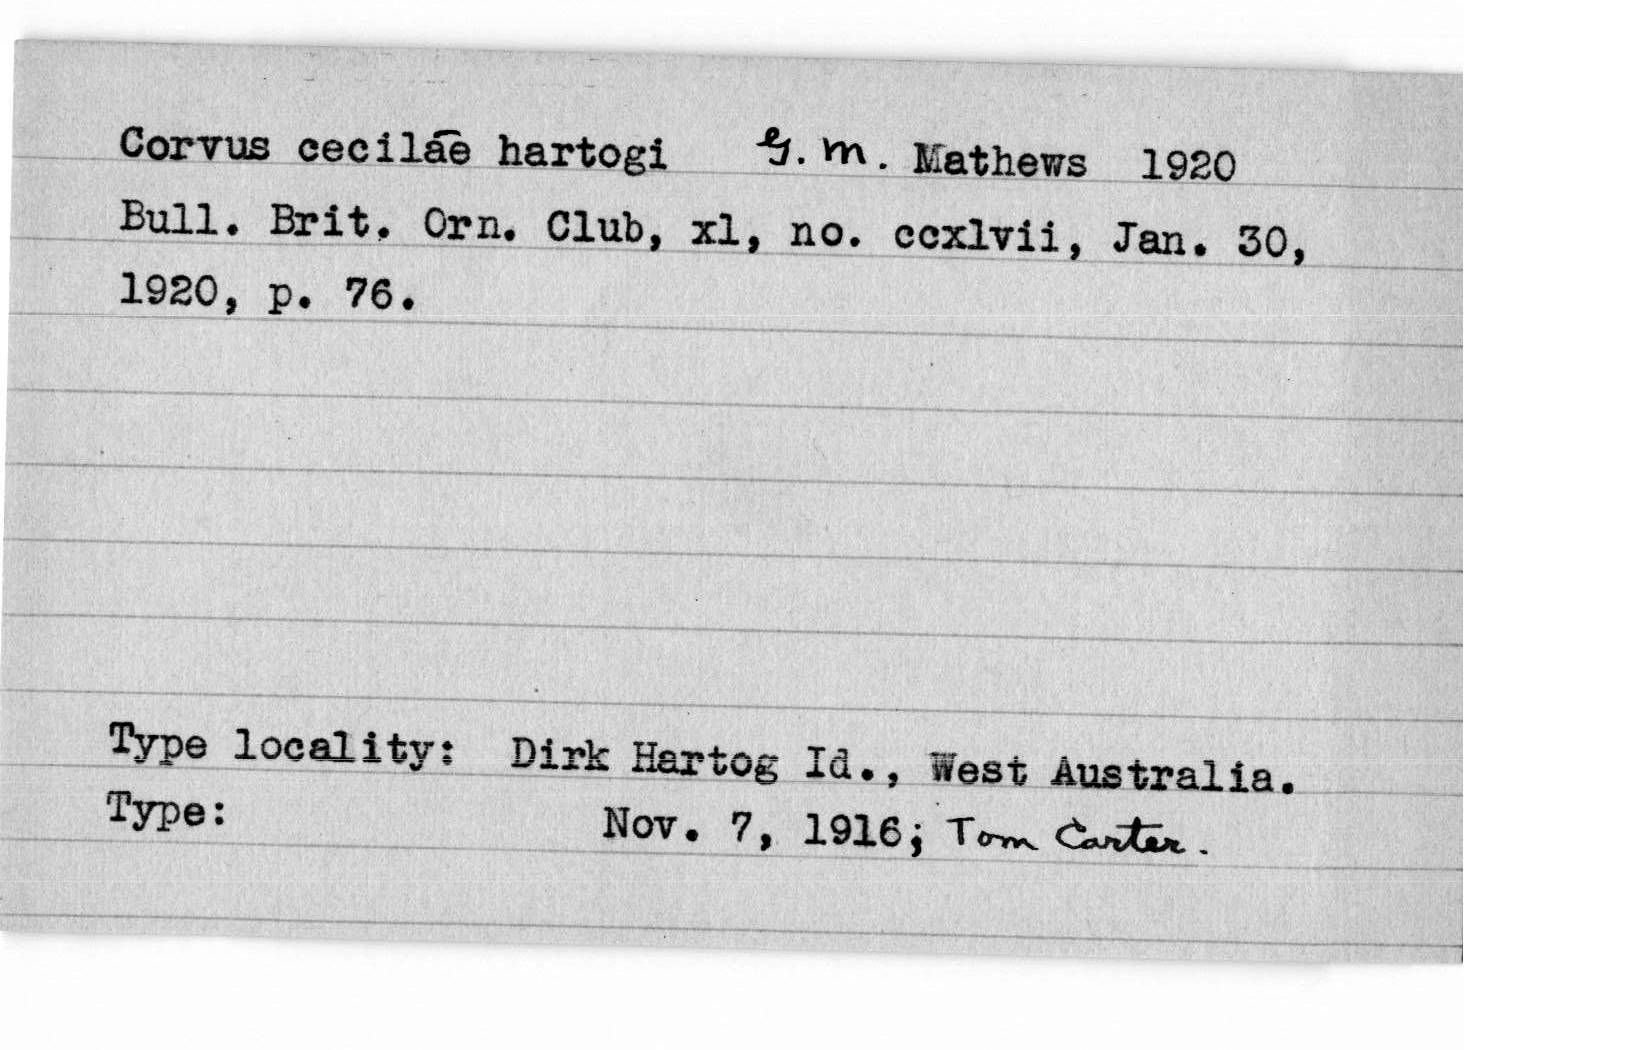 Corvus cecilae hartogi G. M. Mathews 1920
Bull. Brit. Orn. Club, xl, no. ccxlvii, Jan. 30,
1920, p. 76.
Type locality: Dirk Hartog Id., West Australia.
Type: Nov. 7, 1916; Tom Carter.